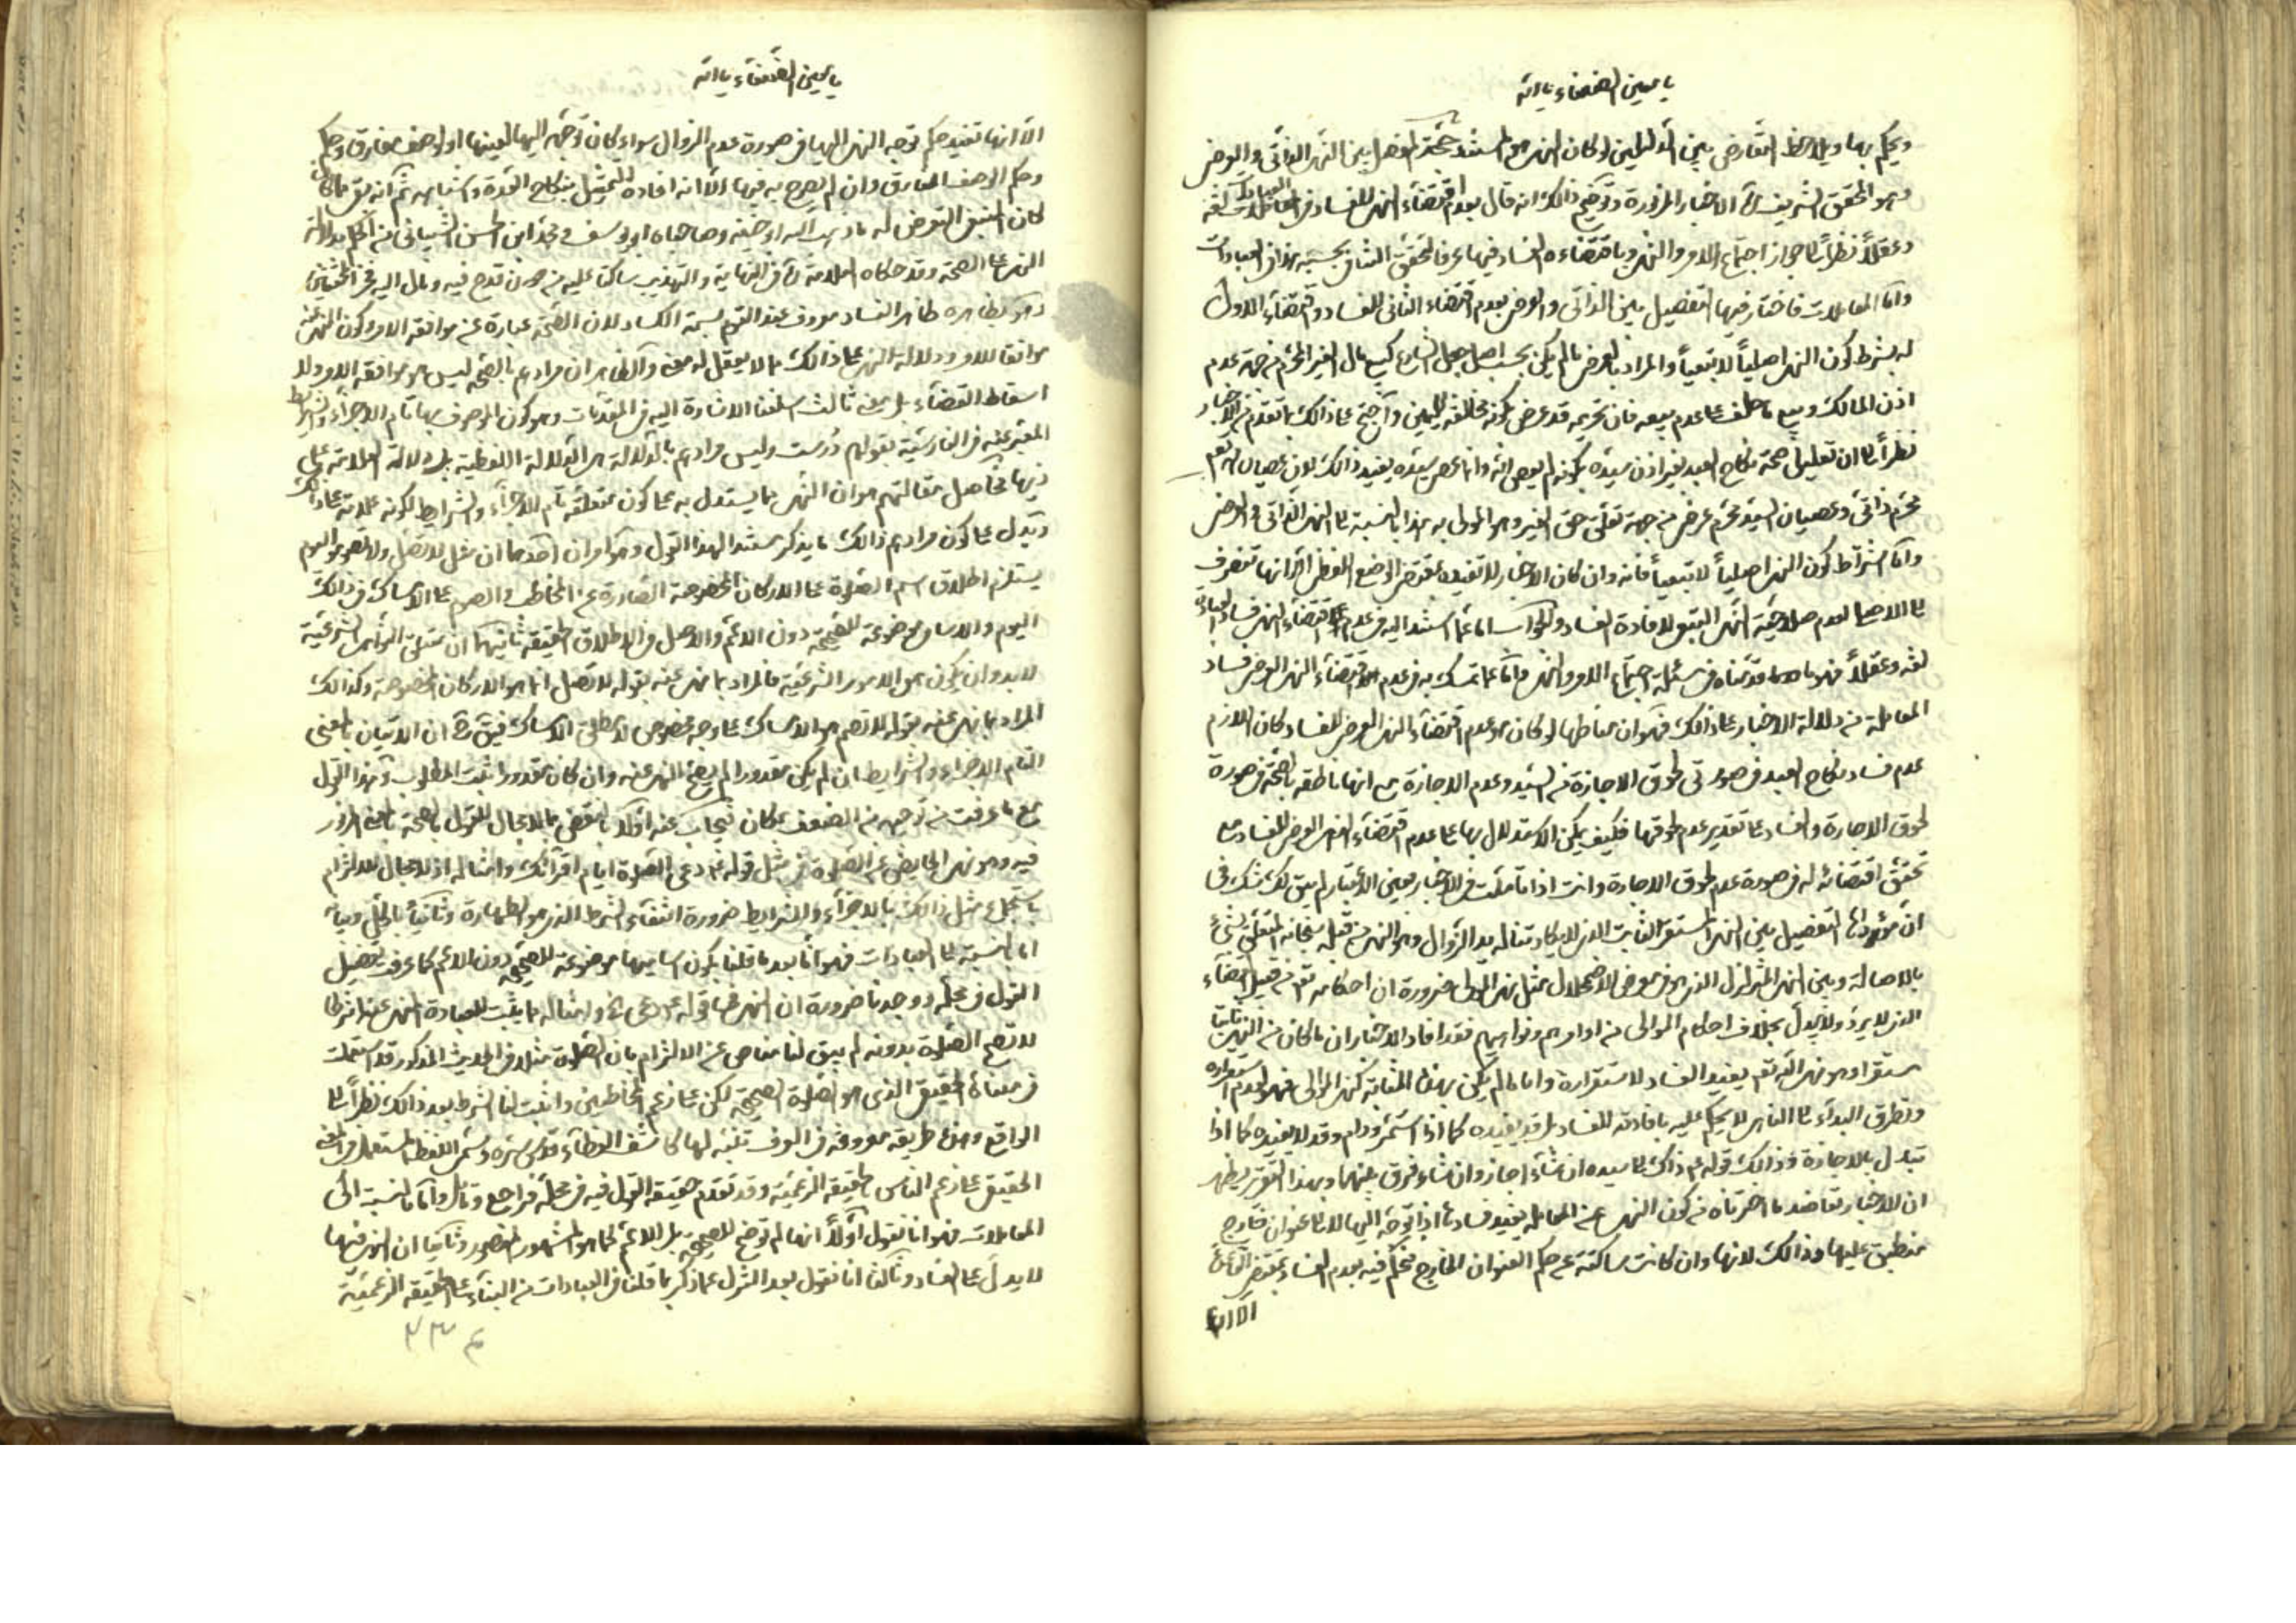 يا معين الضعفاء يا الله
ويحكم بها ويلاحظ التعارض بين الدليلين لو كان النهى مستند حجة المفصل بين النهى الذاتى والعرضى
وهو المحقق الشريف الاخبار المزبورة وتوضيح ذالك انه قال بعدم اقتضاء النهى للفساد فى العبادات لغة
وعقلاً نظراً الى جواز اجتماع الامر والنهى وباقتضاءه الفساد فيها عرفا لتحقق التنافى بحسبه هذا فى العبادات
واما المعاملات فاختار فيها التفصيل بين الذاتى والعرضى بعدم اقتضاء الثانى للفساد واقتضاء الاول
له بشرط كون النهى اصلياً لا تبعياً والمراد بالعرضى ما لم يكن بحسب اصل جعل الشارع كبيع مال الغير المحرم من جهة عدم
اذن المالك وبيع ما حلف على عدم بيعه فان تحريمه قد عرض بكونه مخالفة لليمين واحتج على ذالك بما تقدم من الاخبار
نظراً الى ان تعليل صحة نكاح العبد بغير اذن سيده بكونه لم يعص الله وانما عصى سيده يفيد ذالك لان عصيان الله تعم
محرم ذاتى وعصيان السيد محرم عرضى من جهة تعلق حق الغير وهو المولى به هذا بالنسبة الى النهى الذاتى والعرضى
واما اشتراط كون النهى اصلياً لا تبعياً فانه وان كان الاخبار لا تفيده بمقتضى الوضع اللفظى الا انها تنصرف
الى الاصلى لعدم صلاحية النهى التبعى لافادة الفساد والجواب اما عما استند اليه فى عدم اقتضاء النهى فساد العبادة
لغة وعقلاً فهو ما قدمناه فى مسئلة اجتماع الامر والنهى واما عما تمسك به فى عدم اقتضاء النهى العرضى فساد
المعاملة من دلالة الاخبار على ذالك فهو ان مناطها لو كان هو عدم اقتضاء النهى العرضى للفساد كان اللازم
عدم فساد نكاح العبد فى صورتى لحوق الاجازة من السيد وعدم الاجازة مع انها ناطقة بالصحة فى صورة
لحوق الاجازة والفساد على تقدير عدم لحوقها فكيف يمكن الاستدلال بها على عدم اقتضاء النهى العرضى للفساد مع
تحقق اقتضائه له فى صورة عدم لحوق الاجازة وانت اذا تاملت فى الاخبار بعين الاعتبار لم يبق لك شك فى
ان مؤداها التفصيل بين النهى المستقر الثابت الذى لا يكاد تناله يد الزوال وهو النهى من قبله سبحانه المتعلق بشئ
بالاصالة وبين النهى المتزلزل الذى هو فى معرض الاضمحلال مثل نهى المولى ضرورة ان احكامه تعم من قبيل القضاء
الذى لا يرد ولا يبدل بخلاف احكام الموالى من اوامرهم ونواهيهم فقد افاد الاخبار ان ما كان من النهى ثابتا
مستقرا وهو نهى الله تعم يفيد الفساد لاستقراره واما ما لم يكن بهذه المثابة كنهى الموالى فهو لعدم استقراره
وتطرق البداء الى الناهى لا يحكم عليه بافادته للفساد بل قد يفيده كما اذا استمر ودام وقد لا يفيده كما اذا
تبدل بالاجازة وذالك قوله ع ذاك الى سيده ان شاء اجاز وان شاء فرق بينهما وبهذا التقرير يظهر
ان الاخبار تعاضد ما اخترناه من كون النهى عن المعاملة يفيد فسادها اذا توجه اليها لا الى عنوان خارج
منطبق عليها وذالك لانها وان كانت ساكتة عن حكم العنوان الخارج فحكم فيه بعدم الفساد بمقتضى القاعدة
الا انها
يا معين الضعفاء يا الله
الا انها تفيد حكم توجه النهى اليها فى صورة عدم الزوال سواء كان توجه اليها لعينها او لوصف مفارق وحكم
وحكم الوصف المفارق وان لم يصرح به فيها الا انه افاده التمثيل بنكاح العدة واشباهه ثم انه بقى ما كان
كان ينبغى التعرض له ما ذهب اليه ابو حنيفة وصاحباه ابو يوسف ومحمد ابن الحسن الشيبانى من الحكم بدلالة
النهى على الصحة وقد حكاه العلامة ره فى النهاية والتهذيب ساكتا عليه من دون قدح فيه ومال اليه فخر المحققين
وهو بظاهره ظاهر الفساد معروف عند القوم بسمة الكساد لان الصحة عبارة عن موافقة الامر وكون النهى عن
موافقا للامر ودلالة النهى على ذالك مما لا يعقل له معنى والظاهر ان مرادهم بالصحة ليس هو موافقة الامر ولا
اسقاط القضاء بل معنى ثالث اسلفنا الاشارة اليه فى المقدمات وهو كون الموصوف بها تام الاجزاء والشرايط
المعبر عنه فى الفارسية بقولهم درست وليس مرادهم بالدلالة هى الدلالة اللفظية بل دلالة العلامة على
ذيها فحاصل مقالتهم هو ان النهى مما يستدل به على كون متعلقه تام الاجزاء والشرايط لكونه علامة على ذالك
ويدل على كون مرادهم ذالك ما يذكر مستندا لهذا القول وهو امران احدهما ان مثل لا تصل ولا تصم يوم
يستلزم اطلاق اسم الصلوة على الاركان المخصوصة الصادرة عن المخاطب والصوم على الامساك فى ذالك
اليوم والاسامى موضوعة للصحيحة دون الاعم والاصل فى الاطلاق الحقيقة ثانيهما ان متعلق النواهى الشرعية
لابد وان يكون هى الامور الشرعية فالمراد بما نهى عنه بقوله لا تصل انما هو الاركان المخصوصة وكذالك
المراد بما نهى عنه بقوله لا تصم هو الامساك على وجه مخصوص لا مطلق الامساك فيبقى ح ان الاتيان بالمعنى
التام الاجزاء والشرايط ان لم يكن مقدورا لم يصح النهى عنه وان كان مقدورا ثبت المطلوب وهذا القول
مع ما عرفت من توجيهه من الضعف بمكان فيجاب عنه اولاً بالنقض بما لا مجال للقول بالصحة بالمعنى المزبور
فيه وهو نهى الحايض عن الصلوة فى مثل قوله ع دعى الصلوة ايام اقرائك وامثاله اذ لا مجال للالتزام
باستجماع مثل ذالك بالاجزاء والشرايط ضرورة انتفاء الشرط الذى هو الطهارة وثانياً بالحل وبيانه
اما بالنسبة الى العبادات فهو انا بعد ما قلنا بكون اساميها موضوعة للصحيحة دون الاعم كما عرفت تفصيل
القول فى محله ووجدنا ضرورة ان النهى فى قوله ع دعى الخ وامثاله مما يثبت للعبادة المنهى عنها شرطا
لا تصح الصلوة بدونه لم يبق لنا مناص عن الالتزام بان الصلوة مثلا فى الحديث المذكور قد استعملت
فى معناها الحقيقى الذى هو الصلوة الصحيحة لكن على زعم المخاطبين واثبت لنا الشرط بعد ذالك نظراً الى
الواقع وهذه طريقة معروفة فى العرف تنبه لها كاشف الغطاء قدس سره وسمى اللفظ المستعمل فى المعنى
الحقيقى على زعم الناس بالحقيقة الزعمية وقد تقدم حقيقة القول فيه فى محله فراجع وتامل واما بالنسبة الى
المعاملات فهو انا نقول اولاً انها لم توضع للصحيحة بل للاعم كما هو المشهور المنصور وثانيا ان النهى فيها
لا يدل على الفساد وثالثا انا نقول بعد التنزل عما ذكر بما قلنا فى العبادات من البناء على الحقيقة الزعمية